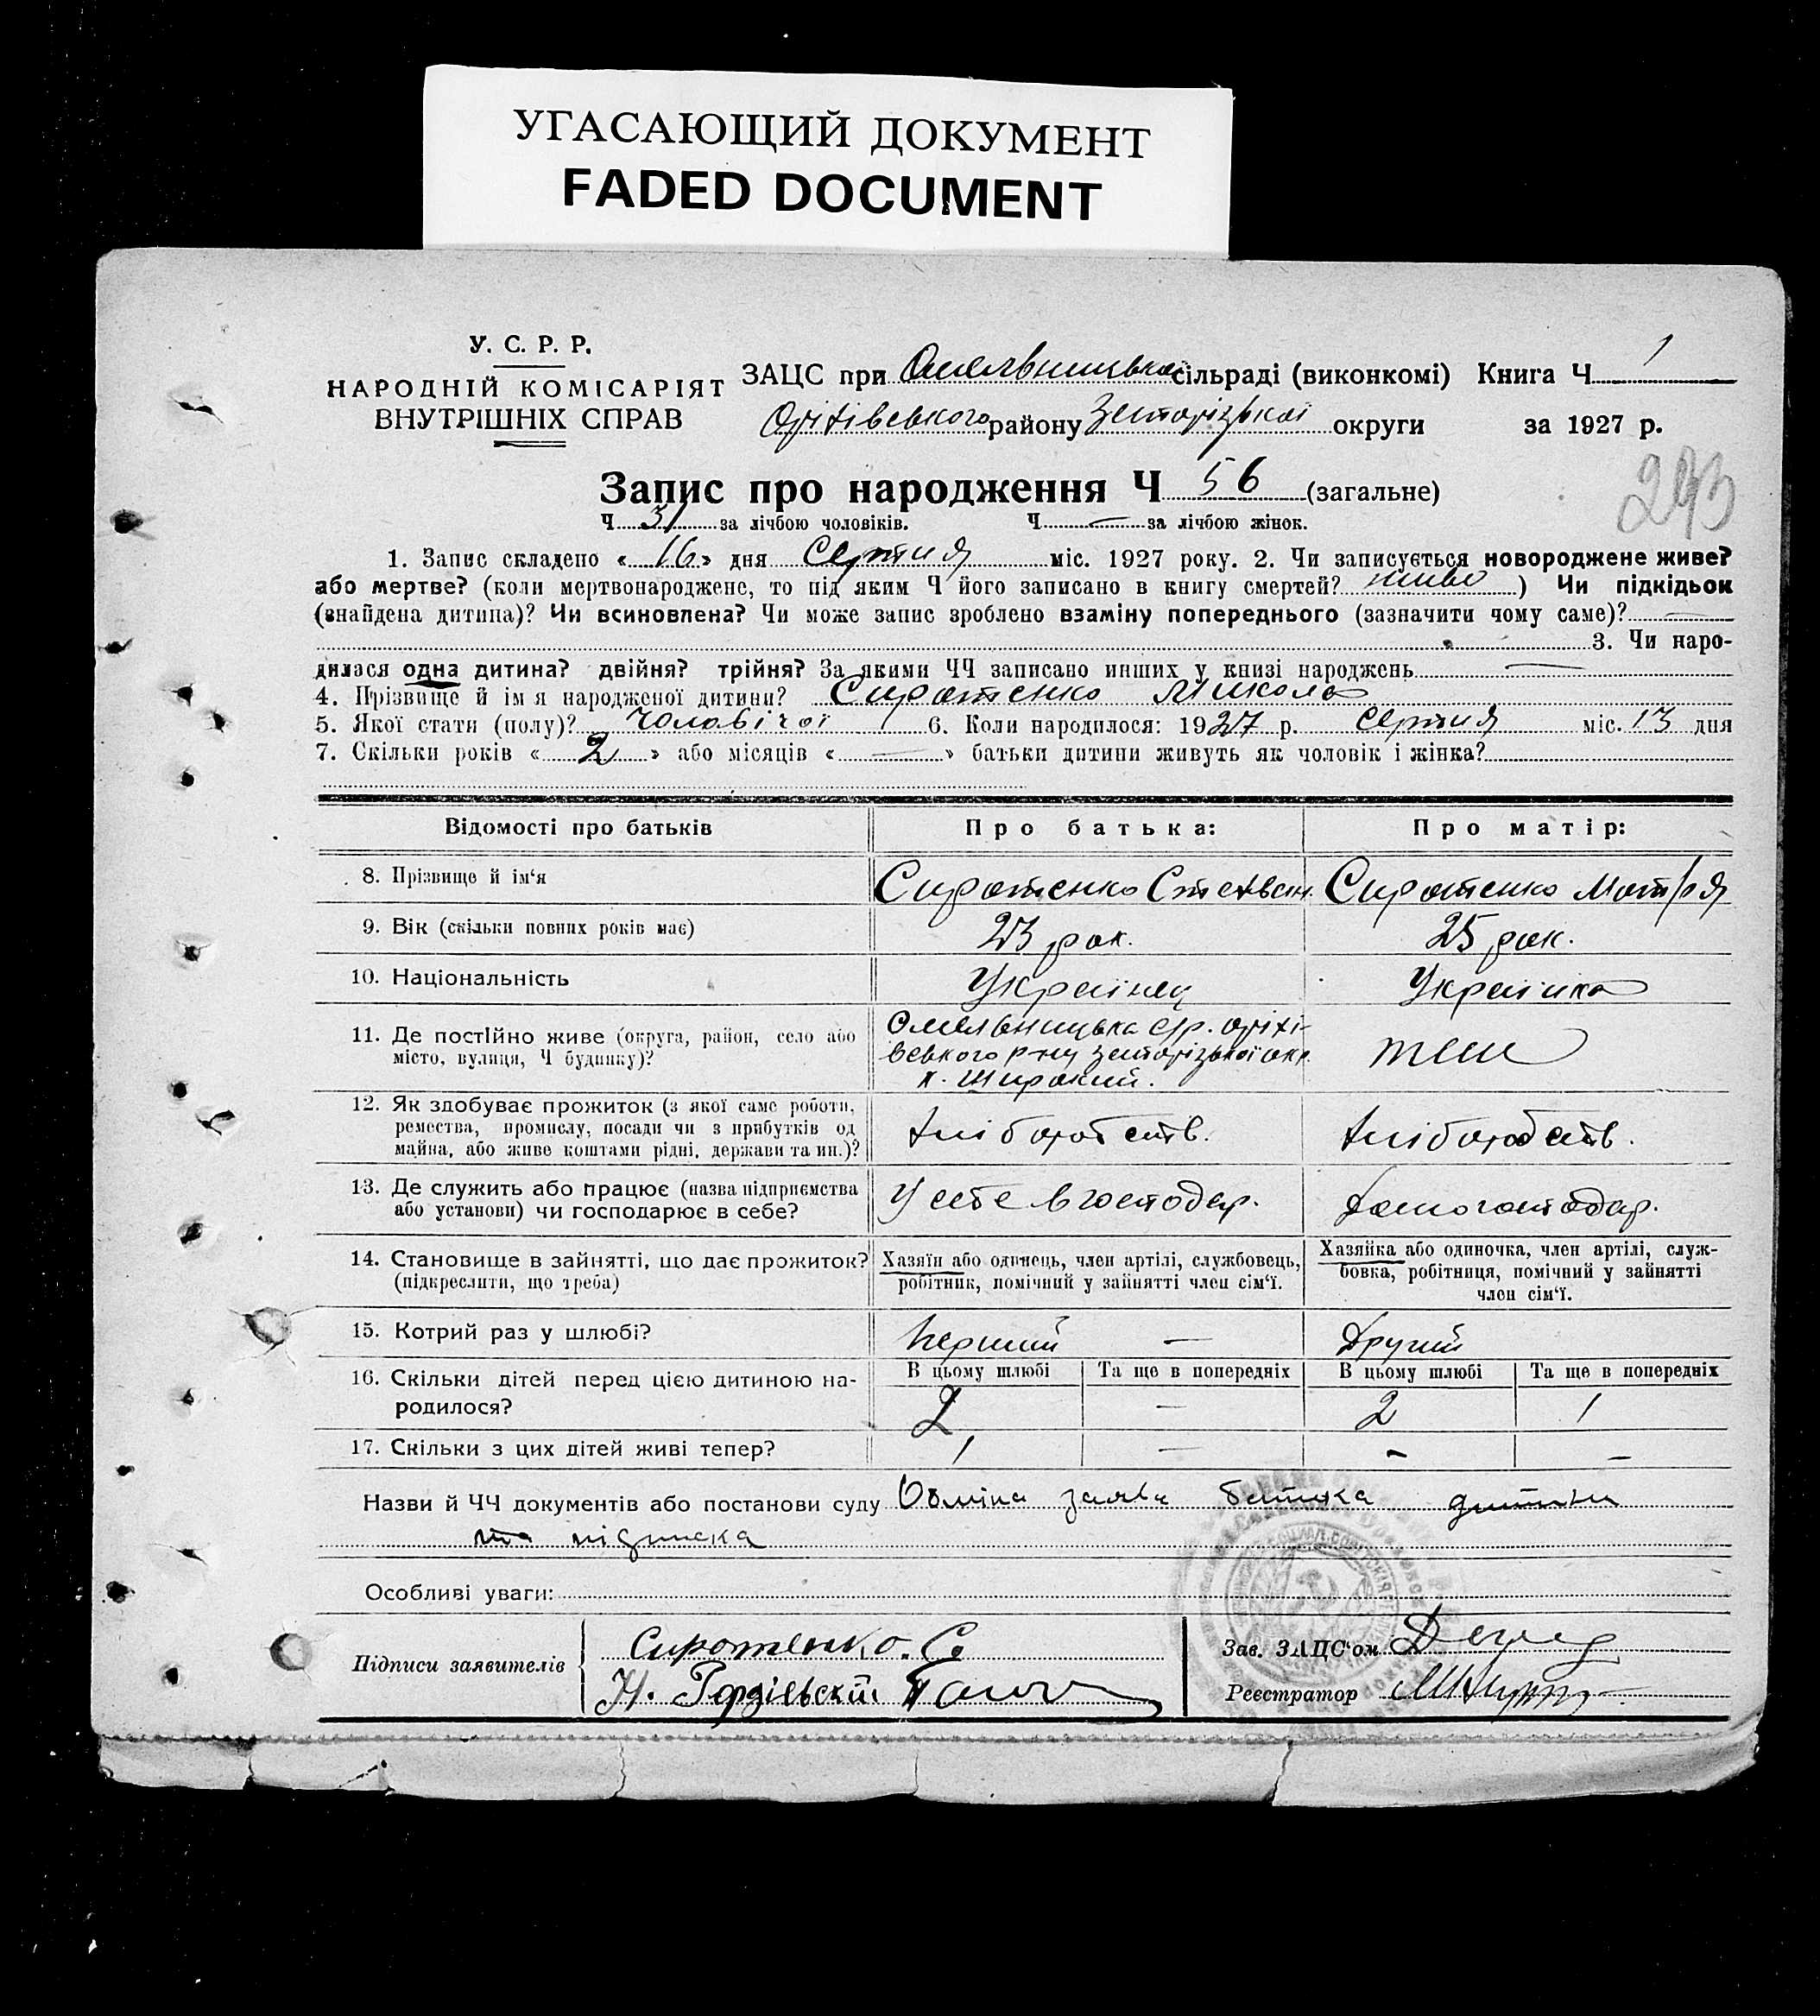 УГАСАЮЩИЙ ДОКУМЕНТ
FADED DOCUMENT
У. С. Р. Р.
НАРОДНІЙ КОМІСАРІЯТ
ВНУТРІШНІХ СПРАВ
ЗАЦС при Омельницька сільраді (виконкомі) Книга Ч 1
Оріхівського району Запорізької округи за 1927 р.
243
Запис про народження Ч 56 (загальне)
Ч 31 за лічбою чоловіків. Ч — за лічбою жінок.
1. Запис складено «16» дня Серпня міс. 1927 року. 2. Чи записується новороджене живе?
або мертве? (коли мертвонароджене, то під яким Ч його записано в книгу смертей? живе ) Чи підкідьок
(знайдена дитина)? Чи всиновлена? Чи може запис зроблено взаміну попереднього (зазначити чому саме)? —
3. Чи наро-
дилася одна дитина? двійня? трійня? За якими ЧЧ записано инших у книзі народжень —
4. Прізвище й ім я народженої дитини? Сиротенко Микола
5. Якої стати (полу)? Чоловічої 6. Коли народилося: 1927 р. серпня міс. 13 дня
7. Скільки років «2» або місяців «—» батьки дитини живуть як чоловік і жінка?
Відомості про батьків Про батька: Про матір:
8. Прізвище й ім'я Сиротенко Степан. Сиротенко Мотря
9. Вік (скільки повних років має) 23 рок. 25 рок.
10. Національність Українец Українка
11. Де постійно живе (округа, район, село або місто, вулиця, Ч будинку)? Омельницька с/р. оріхі-
вського р-ну Запорізької окр.
х. Широкий.
теж
12. Як здобуває прожиток (з якої саме роботи,
ремества, промислу, посади чи з прибутків од
майна, або живе коштами рідні, держави та ин.)?
хліборобств. хліборобств.
13. Де служить або працює (назва підприємства
або установи) чи господарює в себе?
У себе в господар. Домогосподар.
14. Становище в зайнятті, що дає прожиток?
(підкреслити, що треба)
Хазяїн або одинець, член артілі, службовець,
робітник, помічний у зайнятті член сім'ї.
Хазяйка або одиночка, член артілі, служ-
бовка, робітниця, помічний у зайнятті
член сім'ї.
15. Котрий раз у шлюбі? перший — Другий
16. Скільки дітей перед цією дитиною на-
родилося?
В цьому шлюбі Та ще в попередніх В цьому шлюбі Та ще в попередніх
2 — 2 1
17. Скільки з цих дітей живі тепер? 1 — - —
Назви й ЧЧ документів або постанови суду заява батька дитини
та підписка
Особливі уваги:
Підписи заявителів Сиротенко. С
Н.
Зав. ЗАЦС'ом
Реєстратор